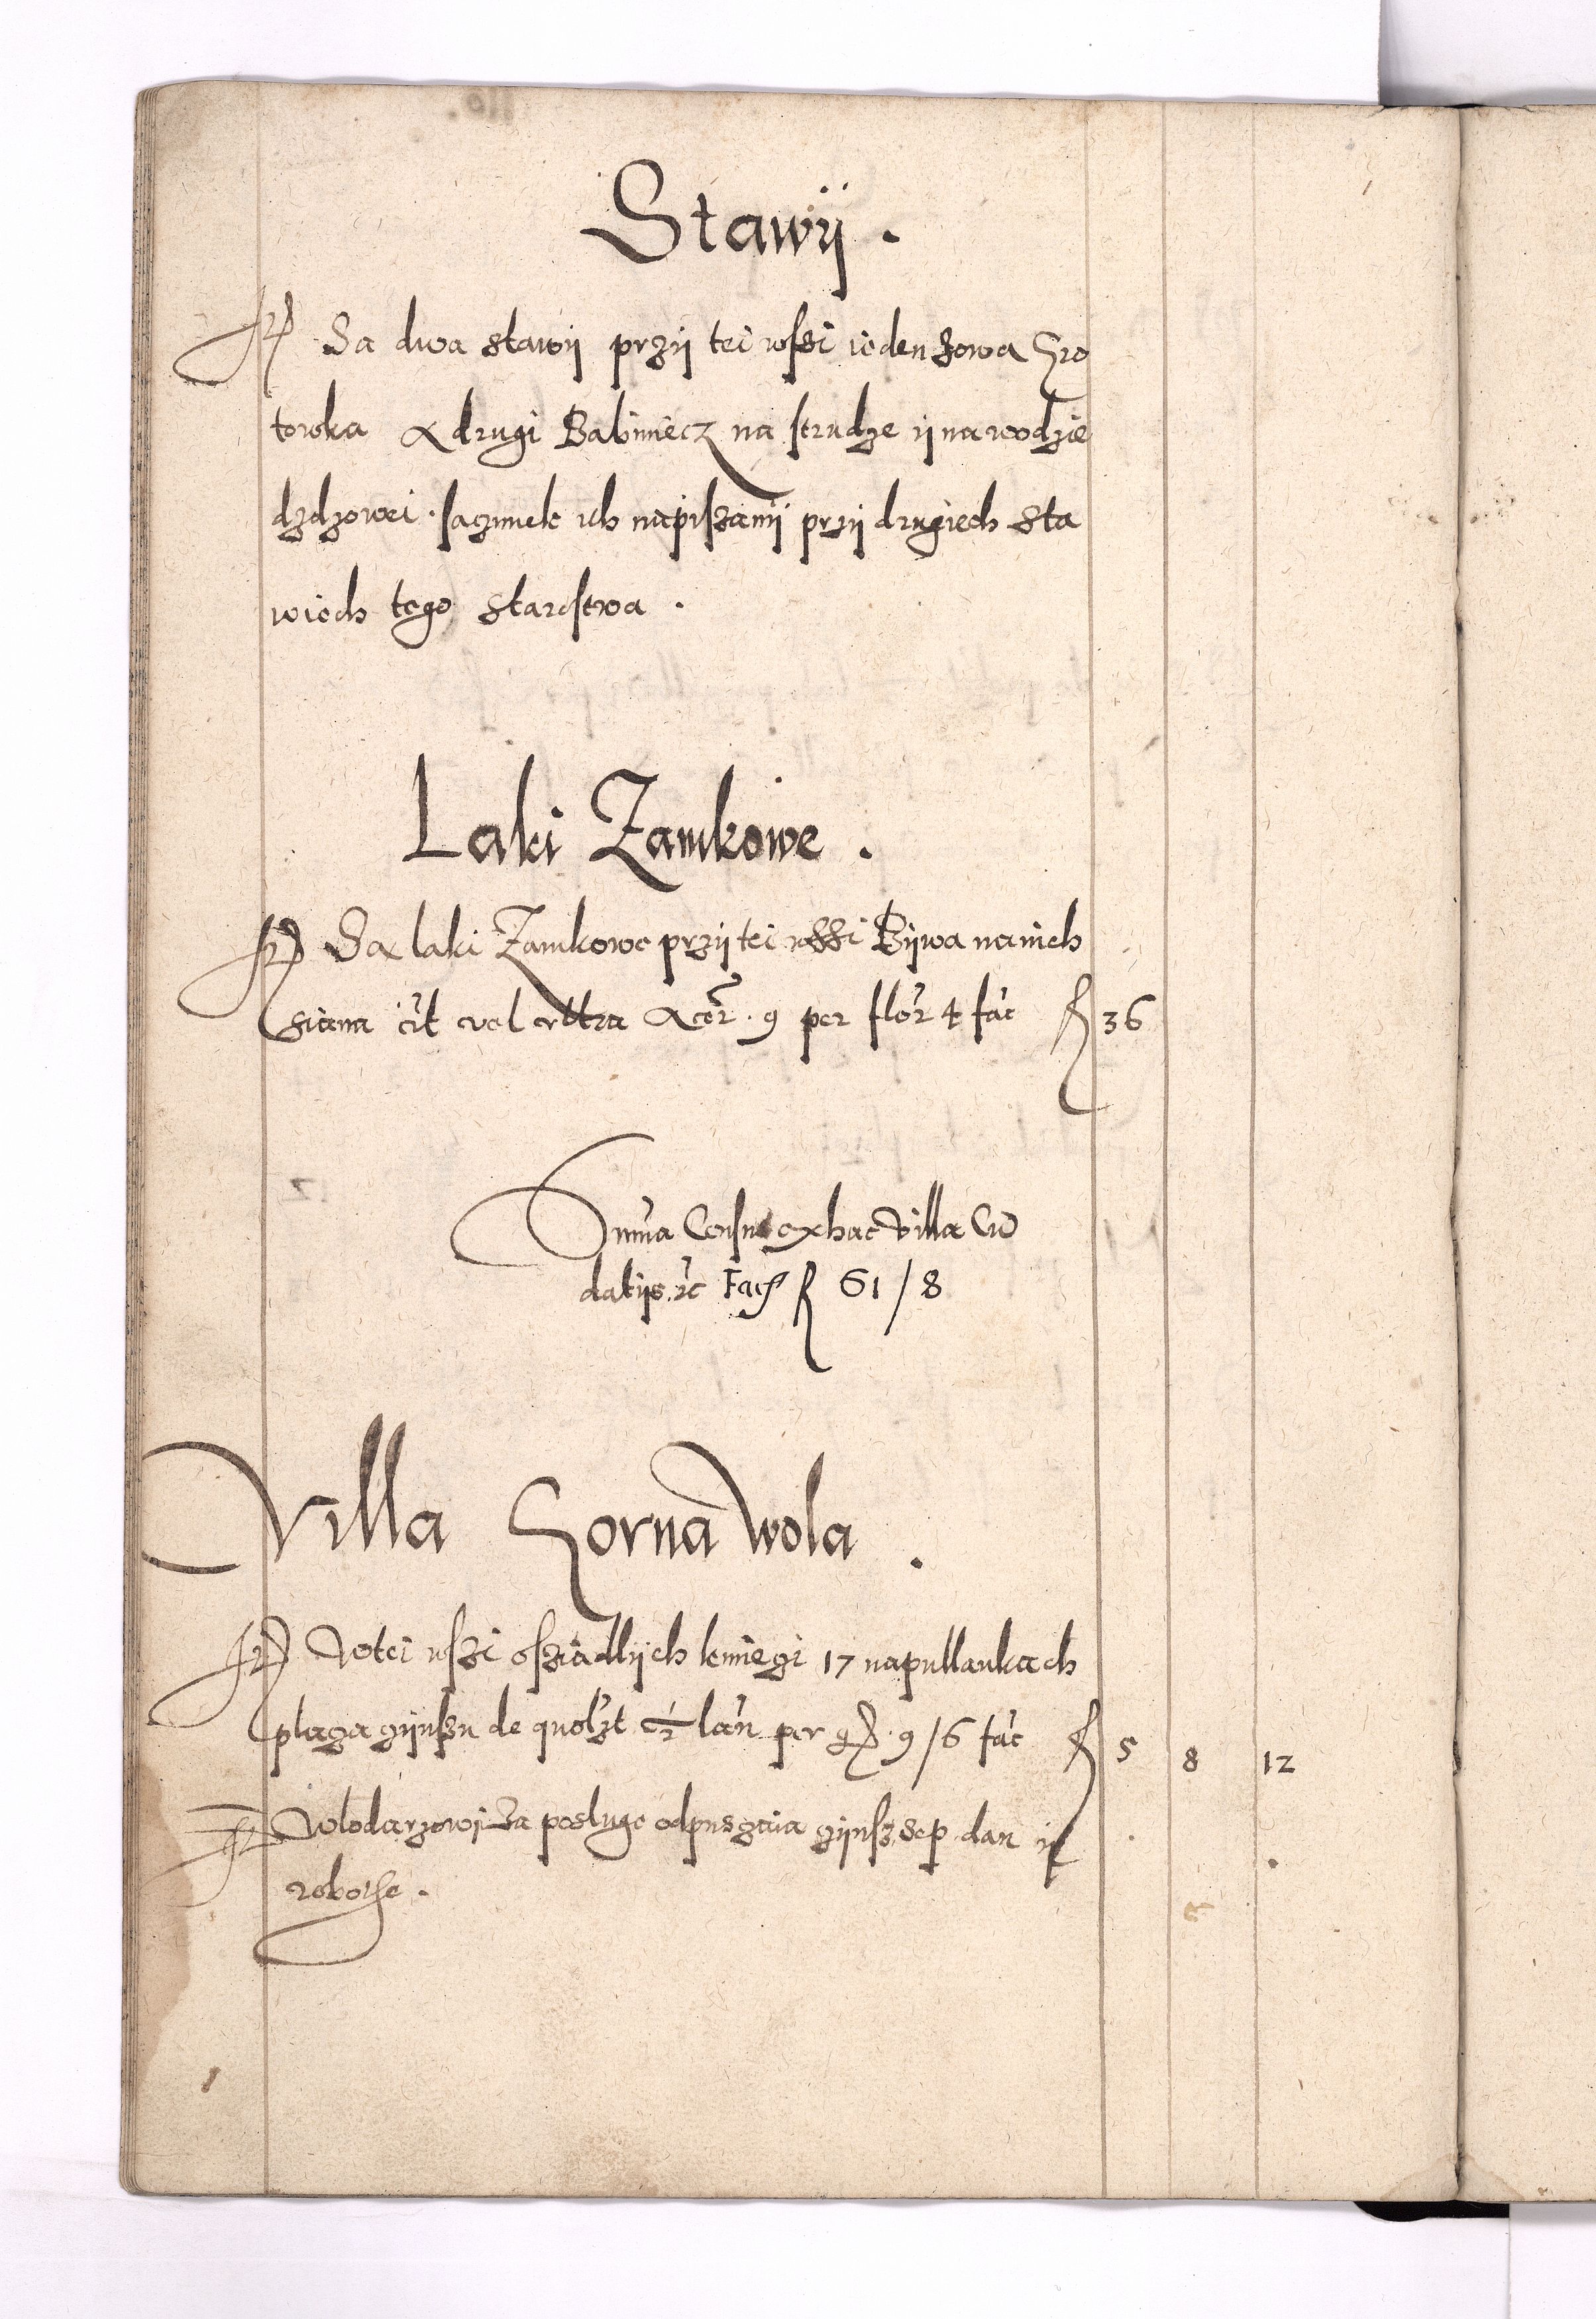 Stawÿ .
Sa dwa stawÿ przÿ tei wſsi ieden zowa Gro
towka a drugi Babiniecz na strudze ÿ na wodzie
dzdzowei . ſaczunek ich napiszanÿ przÿ drugiech sta
wiech tego starostwa .
Laki Zamkowe .
Sa laki Zamkowe przÿ tei wssi Bÿwa na nich
siana cit vel vltra acer . 9 per flor 4 fac fl 36
Suma Census ex hac villa Cu
datÿs Fac fl 61 / 8
Villa Gorna Wola .
W tei wſzi osziadlÿch kmiegi 17 na pullankach
placza czÿnszu de quolzt ½ lan per gr 9 / 6 fac fl 5 8 12
Wlodarzowi za posluge odpuszczaia czÿnsz sep dan ÿ
robothe .